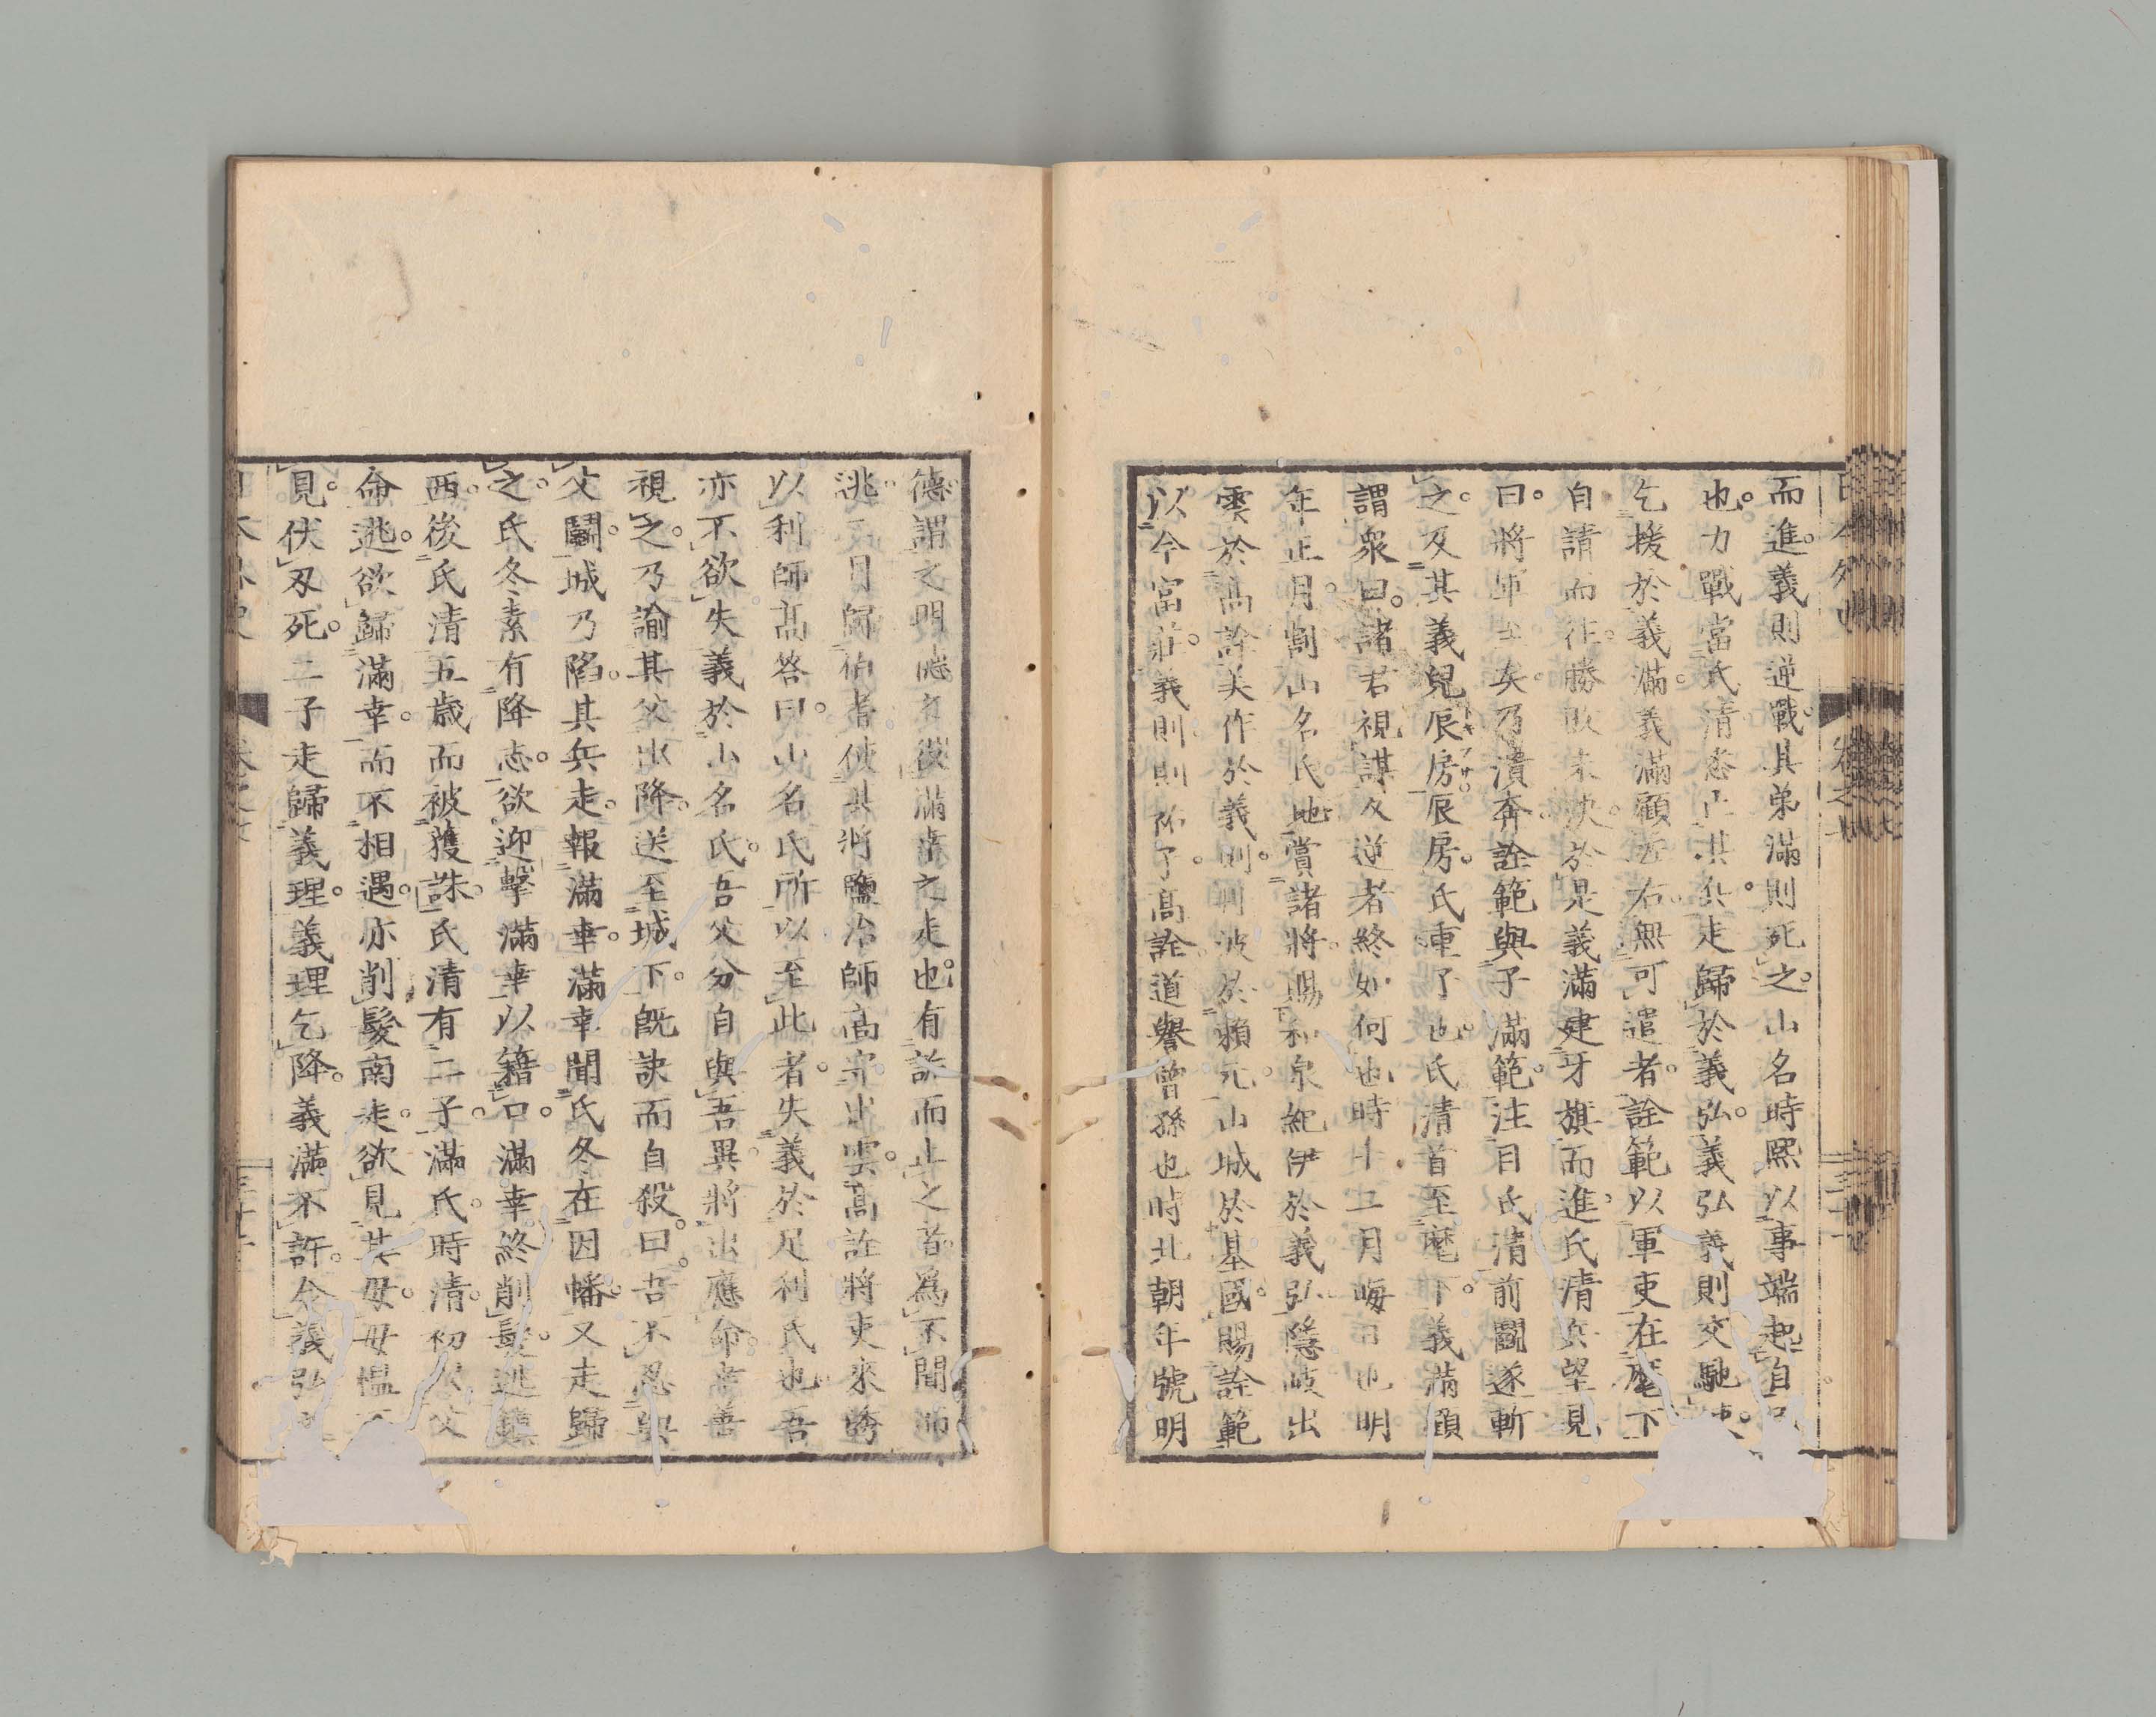 而進義則逆戰其弟滿則死之山名時熙以事端起自
也力戰當氏清悉亡其兵走歸於義弘義弘義則交馳
乞援於義滿義滿顧左右無可遣者詮範以軍吏在麾下
自請而往勝敗未決於是義滿建牙旗而進氏清兵望見
曰將軍至矣乃潰奔詮範與子滿範注目氏清前鬭遂斬
之及其義兒辰房辰房氏重了也氏清首至麾下義滿顧
謂衆曰諸君視謀反逆者終如何也時十二月晦日也明
年正月割山名氏地賞諸將賜和泉紀伊於義弘隱岐出
雲於高詮美作於義則丹波於賴元山城於基國賜詮範
以今富莊義則則祐子高詮道譽曾孫也時北朝年號明
德謂之明德之役滿幸之走也有諫而止之者爲不聞而
逃二月歸伯耆使其將鹽冶師高守出雲高詮將吏來誘
以利師高答曰山名氏所以至此者失義於足利氏也吾
亦不欲失義於山名氏吾父分自與吾異將出應命
視之乃諭其父出降送至城下既訣而自殺曰吾不忍與
父鬭城乃陷其兵走報滿幸滿幸聞氏冬在因幡又走歸
之氏冬素有降志欲迎擊滿幸以籍口滿幸終削髮逃鎮
西後氏清五歲而被獲誅氏清有二子滿氏時清初從父
命逃欲歸滿幸而不相遇亦削髮南走欲見其母母慍不
見伏刃死二子走歸義理義理乞降義滿不許令義弘